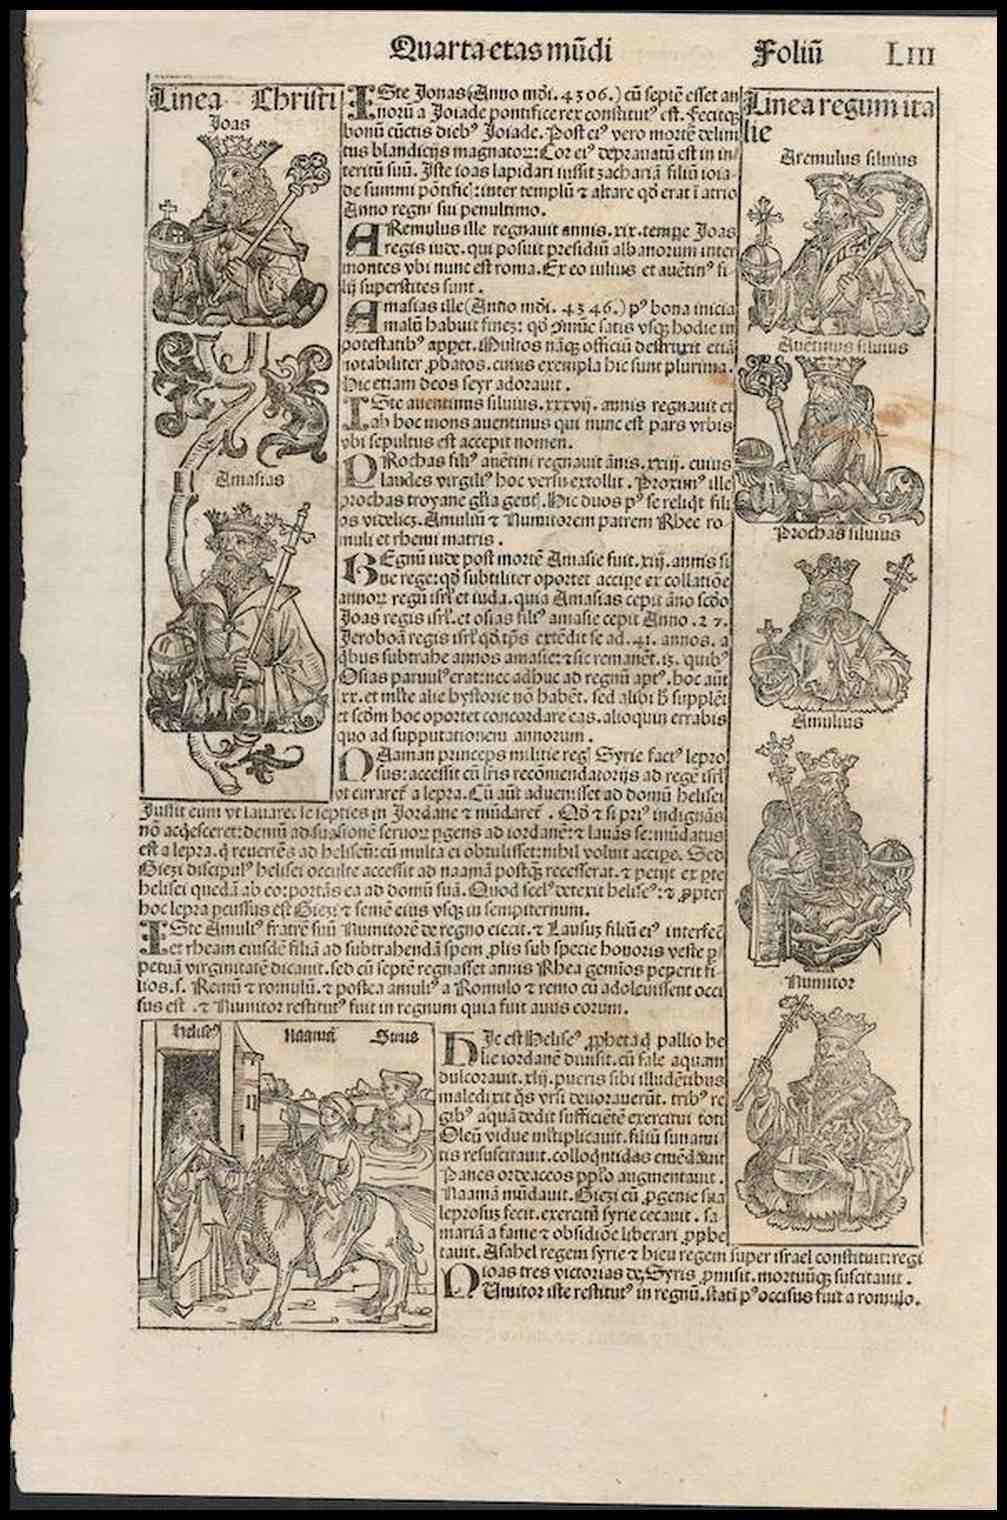 Quarta etas mūdi
Foliū LIII
Linea Christi
Joas
Amasias
ISte Jonas (Anno mōi. 4306.) cū septē esset an
norū a Joiade pontifice rex constitutꝰ est. Fecitqꝫ
bonū cūctis diebꝰ Joiade. Post eiꝰ vero mortē delini
tus blandicijs magnatoꝝ: Cor eiꝰ depravatū est in in
teritū suū. Iste ioas lapidari iussit zachariā filiū ioia-
de summi pōtific: inter templū ⁊ altare qd̄ erat ī atrio
Anno regni sui penultimo.
ARemulus ille regnavit annis. xix. tempe Joas
regis iude. qui posuit presidiū albanorum inter
montes vbi nunc est roma. Ex eo iulius et auētinꝰ fi-
lij superstites sunt.
AMasias ille (Anno mōi. 4346.) pꝰ bona inicia
malū habuit finez: qd̄ ꝯmūe satis vsqꝫ hodie in
potestatibꝰ appet. Multos nāqꝫ officiū destruxit etiā
notabiliter ꝓbatos. cuius exempla hic sunt plurima.
Hic etiam deos seyr adoravit.
ISte aventinus silvius. xxxvij. annis regnavit et
ab hoc mons aventinus qui nunc est pars vrbis
vbi sepultus est accepit nomen.
PRochas filiꝰ avētini regnavit ānis. xxiij. cuius
laudes virgiliꝰ hoc versu extollit. Proximꝰ ille
prochas troyane glīa gentꝭ. Hic duos pꝰ se reliqt fili
os videlicꝫ. Amuliū ⁊ Numitorem patrem Rhee ro
muli et rhemi matris.
REgnū iude post mortē Amasie fuit. xiij. annis si
ne rege: qd̄ subtiliter oportet accipe ex collatiōe
annoꝝ regū isrl̄ et iuda. quia Amasias cepit āno scd̄o
Joas regis isrl̄. et osias filiꝰ amasie cepit Anno. 27.
Jeroboā regis isrl̄ qd̄ tp̄s extēdit se ad. 41. annos. a
qbus subtrahe annos amasie: ⁊ sic remanēt. 13. quibꝰ
Osias parvulꝰ erat: nec adhuc ad regnū aptꝰ. hoc aūt
xx. et iuste alie hystorie nō habēt. sed alibi h̄ supplēt
et scd̄m hoc oportet concordare eas. alioquin errabis
quo ad supputationem annorum.
NAaman princeps militie regꝭ Syrie factꝰ lepro
sus: accessit cū lr̄is recōmendatorijs ad regē isrl̄
vt curaret̄ a lepra. Cū aūt advenisset ad domū helisei
Iussit eum vt lavaret se septies in Jordane ⁊ mūdaret̄. Qd̄ ⁊ si priꝰ indignās
nō acqesceret: demū ad suasionē servoꝝ pgens ad iordanē: ⁊ lavās se: mūdatus
est a lepra. q revertēs ad heliseū: cū multa ei obtulisset: nihil voluit accipe. Sed
Giezi discipulꝰ helisei occulte accessit ad naamā postqꝫ recesserat. ⁊ petijt ex pte
helisei quedā ab eo: portās ea ad domū suā. Quod scelꝰ detexit heliseꝰ: ⁊ ꝓpter
hoc lepra pcussus est Giezi ⁊ semē eius vsqꝫ in sempiternum.
ISte Amulꝰ fratrē suū Numitorē de regno eiecit. ⁊ Lausuꝫ filiū eiꝰ interfec̄
et rheam eiusdē filiā ad subtrahendā spem ꝓlis sub specie honoris veste p
petuā virginitatē dicavit. sed cū septē regnasset annis Rhea gemios peperit fi-
lios. s. Remū ⁊ romulū. ⁊ postea amuliꝰ a Romulo ⁊ remo cū adolevissent occi
sus est. ⁊ Numitor restitutꝰ fuit in regnum quia fuit avus eorum.
Heliseꝰ Naamā Sirus
HIc est Heliseꝰ ꝓpheta q pallio he
lie iordanē divisit. cū sale aquam
dulcoravit. xlij. pueris sibi illudētibus
maledixit qs vrsi devoraverūt. tribꝰ re
gibꝰ aquā dedit sufficiētē exercitui toti
Oleū vidue mltiplicavit. filiū sunami
tis resuscitavit. colloqntidas emēdavit
Panes ordeaceos pplo augmentavit.
Naamā mūdavit. Giezi cū ꝓgenie sua
leprosuꝫ fecit. exercitū syrie cecavit. sa
mariā a fame ⁊ obsidiōe liberari ꝓphe
tavit. Asahel regem syrie ⁊ hieu regem super israel constituit: regi
ioas tres victorias de Syris ꝓmisit. mortuūqꝫ suscitavit.
NUmitor iste restitutꝰ in regnū. stati pꝰ occisus fuit a romulo.
Linea regum ita
lie
Aremulus silvius
Aventinus silvius
Prochas silvius
Amulius
Numitor